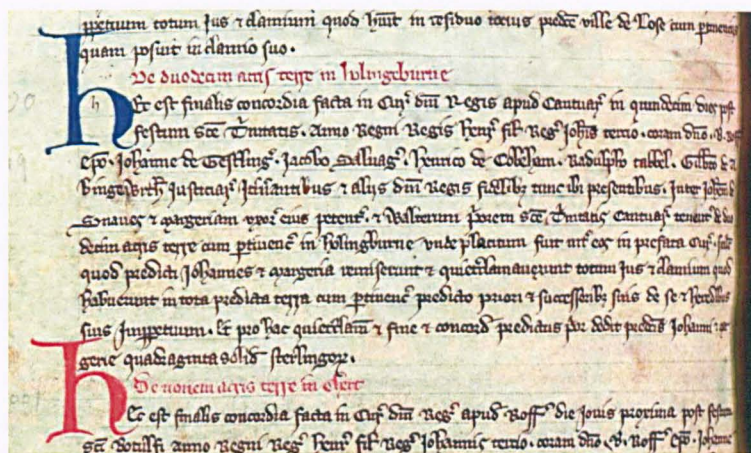 ppetuum totum Jus ⁊ clamium quod huit in residuo tocius predce ville de Lose cum ptinenc
quam posuit in clamio suo.
De duodecim acris terre in holingeburne
hEc est finalis concordia facta in Cur dni Regis apud Cantuar in quindecim dies post
festum sce Trinitatis. Anno Regni Regis henr fil Reg Johis tercio. coram dno. R. Roff
epo. Johanne de Gestling. Jacobo Saluag. henrico de Cobeham. Radulpho tabbel. Gilbto de
bingewrth Justiciar Itinantibus ⁊ aliis dni Regis fidelibz tunc ibi presentibus. Inter Johem de
Snaues ⁊ margeriam vxorem eius petent. ⁊ Walterum Priorem sce Trinitatis Cantuar tenent de duo
decim acris terre cum ptinenc in holingburne vnde placitum fuit int eos in prefata Cur. scil
quod predicti Johannes ⁊ margeria remiserunt ⁊ quietclamauerunt totum Jus ⁊ clamium quod
habuerunt in tota predicta terra cum ptinenc predicto priori ⁊ successoribz suis de se ⁊ heredibus
suis Inppetuum. Et pro hac quietclam ⁊ fine ⁊ concord predictus por dedit predcis Johanni ⁊ mar
gerie quadraginta solid sterlingor.
De nouem acris terre in Cleit
hEc est finalis concordia facta in Cur dni Reg apud Roff die Jouis proxima post festum
sci Botulfi anno Regni Reg henr fil Reg Johannis tercio. coram dno. B. Roff epo. Johanne